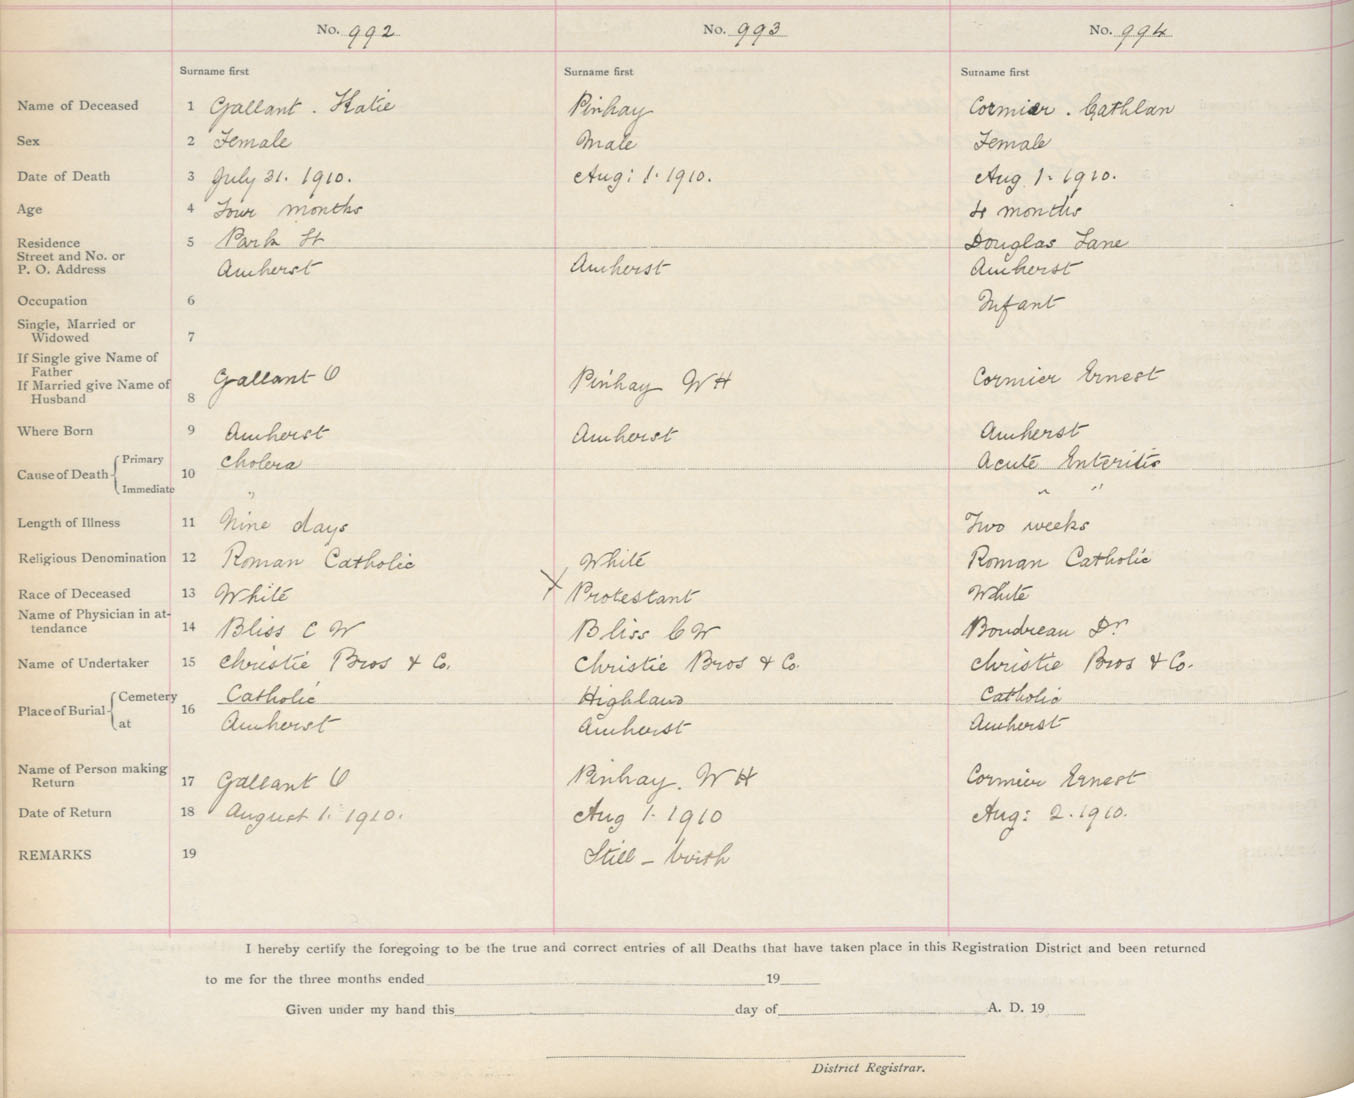 No. 992 No. 993 No. 994
Surname first Surname first Surname first
Name of Deceased 1 Gallant . Katie Pinhay Cormier . Cathlan
Sex 2 Female Male Female
Date of Death 3 July 31. 1910. Aug: 1. 1910. Aug 1. 1910.
Age 4 Four months 4 months
Residence 5 Park St Douglas Lane
Street and No. or
P. O. Address Amherst Amherst Amherst
Occupation 6 Infant
Single, Married or
Widowed 7
If Single give Name of
Father
If Married give Name of Gallant O Pinhay W H Cormier Ernest
Husband 8
Where Born 9 Amherst Amherst Amherst
Primary Cholera Acute Enteritis
Cause of Death 10
Immediate " " "
Length of Illness 11 Nine days Two weeks
Religious Denomination 12 Roman Catholic White Roman Catholic
Race of Deceased 13 White X Protestant White
Name of Physician in at-
tendance 14 Bliss C W Bliss C W Boudreau Dr
Name of Undertaker 15 Christie Bros & Co. Christie Bros & Co. Christie Bros & Co.
Cemetery Catholic Highland Catholic
Place of Burial 16
at Amherst Amherst Amherst
Name of Person making
Return 17 Gallant O Pinhay. W H Cormier Ernest
Date of Return 18 August 1. 1910. Aug 1. 1910 Aug: 2. 1910.
REMARKS 19 Still - birth
I hereby certify the foregoing to be the true and correct entries of all Deaths that have taken place in this Registration District and been returned
to me for the three months ended 19
Given under my hand this day of A. D. 19
District Registrar.